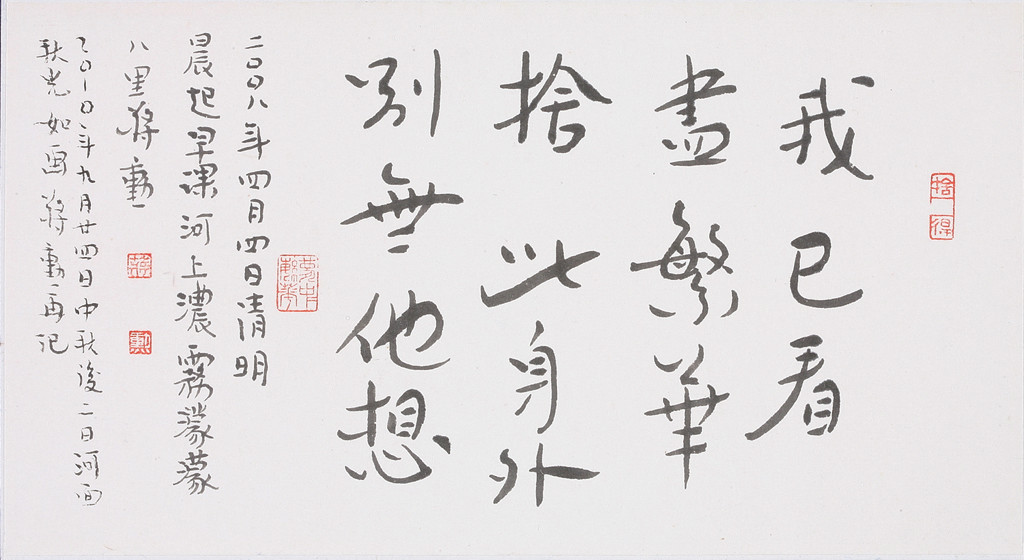 捨得
我已看
盡繁華
捨此身外
別無他想
二〇〇八年四月四日清明
晨起早課河上濃霧濛濛
八里蔣勳
蔣
勳
二〇一〇年九月廿四日中秋後二日河面
秋光如畫蔣勳再記